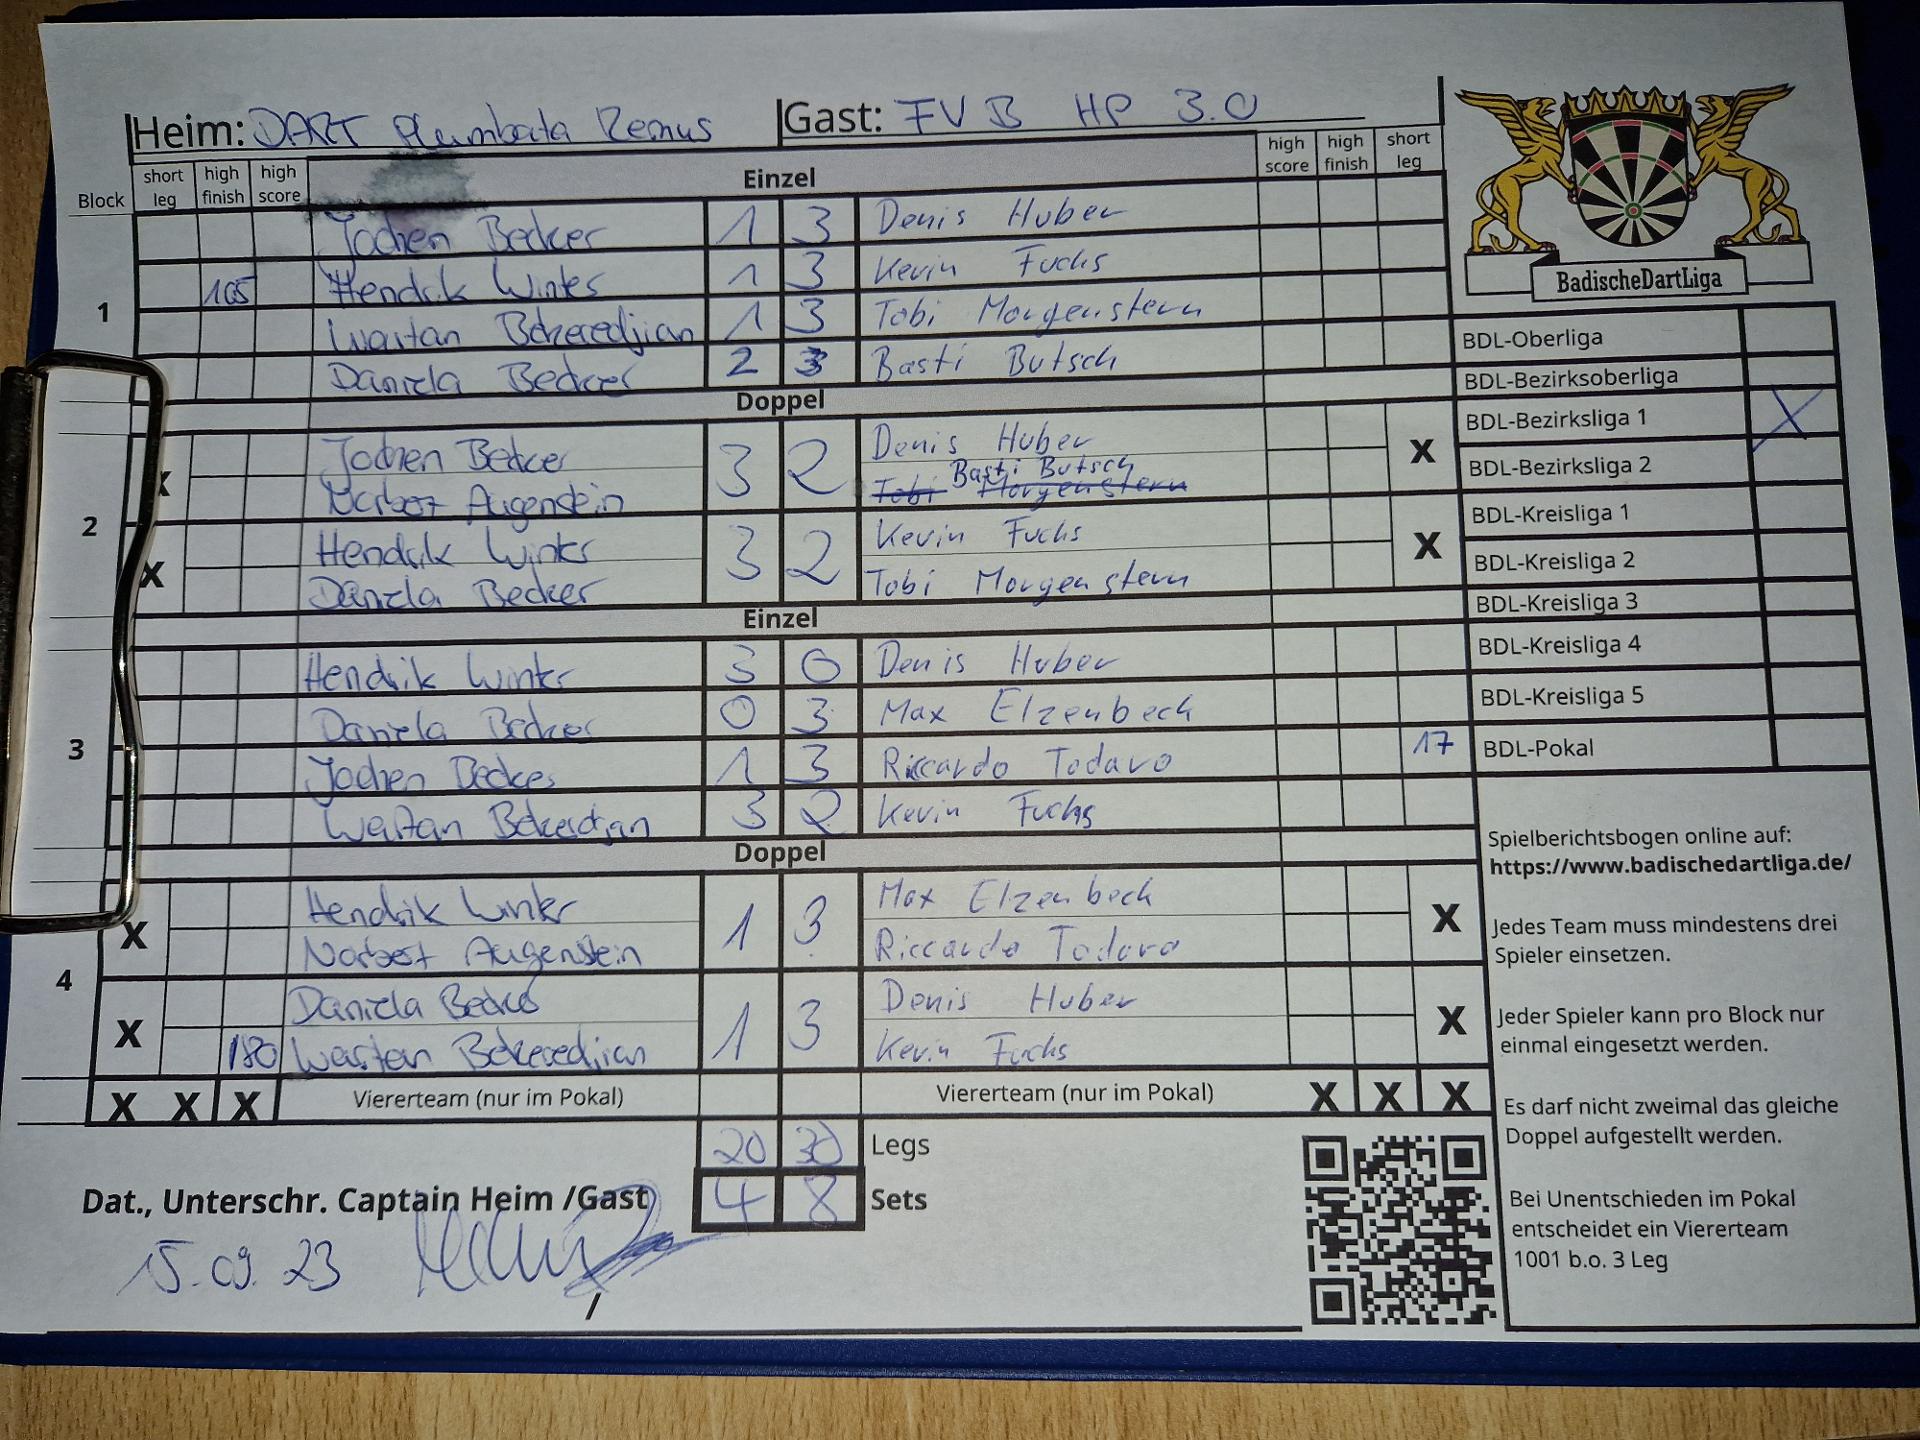 Heim: DART Plumbata Remus Gast: FV B HP 3.0
Block short leg high finish high score Einzel high score high finish short leg
1
Jochen Becker 1 3 Denis Huber
105 Hendrik Winter 1 3 Kevin Fuchs
Wartan Bekeredjian 1 3 Tobi Morgenstern
Daniela Becker 2 3 Basti Butsch
Doppel
2
X Jochen Becker 3 2 Denis Huber X
Norbert Augenstein Basti Butsch
Tobi Morgenstern
X Hendrik Winter 3 2 Kevin Fuchs X
Daniela Becker Tobi Morgenstern
Einzel
3
Hendrik Winter 3 0 Denis Huber
Daniela Becker 0 3 Max Elzenbeck
Jochen Becker 1 3 Riccardo Todaro 17
Wartan Bekerdjan 3 2 Kevin Fuchs
Doppel
4
X Hendrik Winter 1 3 Max Elzenbeck X
Norbert Augenstein Riccardo Todaro
X Daniela Becker 1 3 Denis Huber X
180 Wartan Bekeredjian Kevin Fuchs
X X X Viererteam (nur im Pokal) Viererteam (nur im Pokal) X X X
20 30 Legs
4 8 Sets
Dat., Unterschr. Captain Heim /Gast
15.09.23
/
BadischeDartLiga
BDL-Oberliga
BDL-Bezirksoberliga
BDL-Bezirksliga 1 X
BDL-Bezirksliga 2
BDL-Kreisliga 1
BDL-Kreisliga 2
BDL-Kreisliga 3
BDL-Kreisliga 4
BDL-Kreisliga 5
BDL-Pokal
Spielberichtsbogen online auf:
https://www.badischedartliga.de/
Jedes Team muss mindestens drei
Spieler einsetzen.
Jeder Spieler kann pro Block nur
einmal eingesetzt werden.
Es darf nicht zweimal das gleiche
Doppel aufgestellt werden.
Bei Unentschieden im Pokal
entscheidet ein Viererteam
1001 b.o. 3 Leg